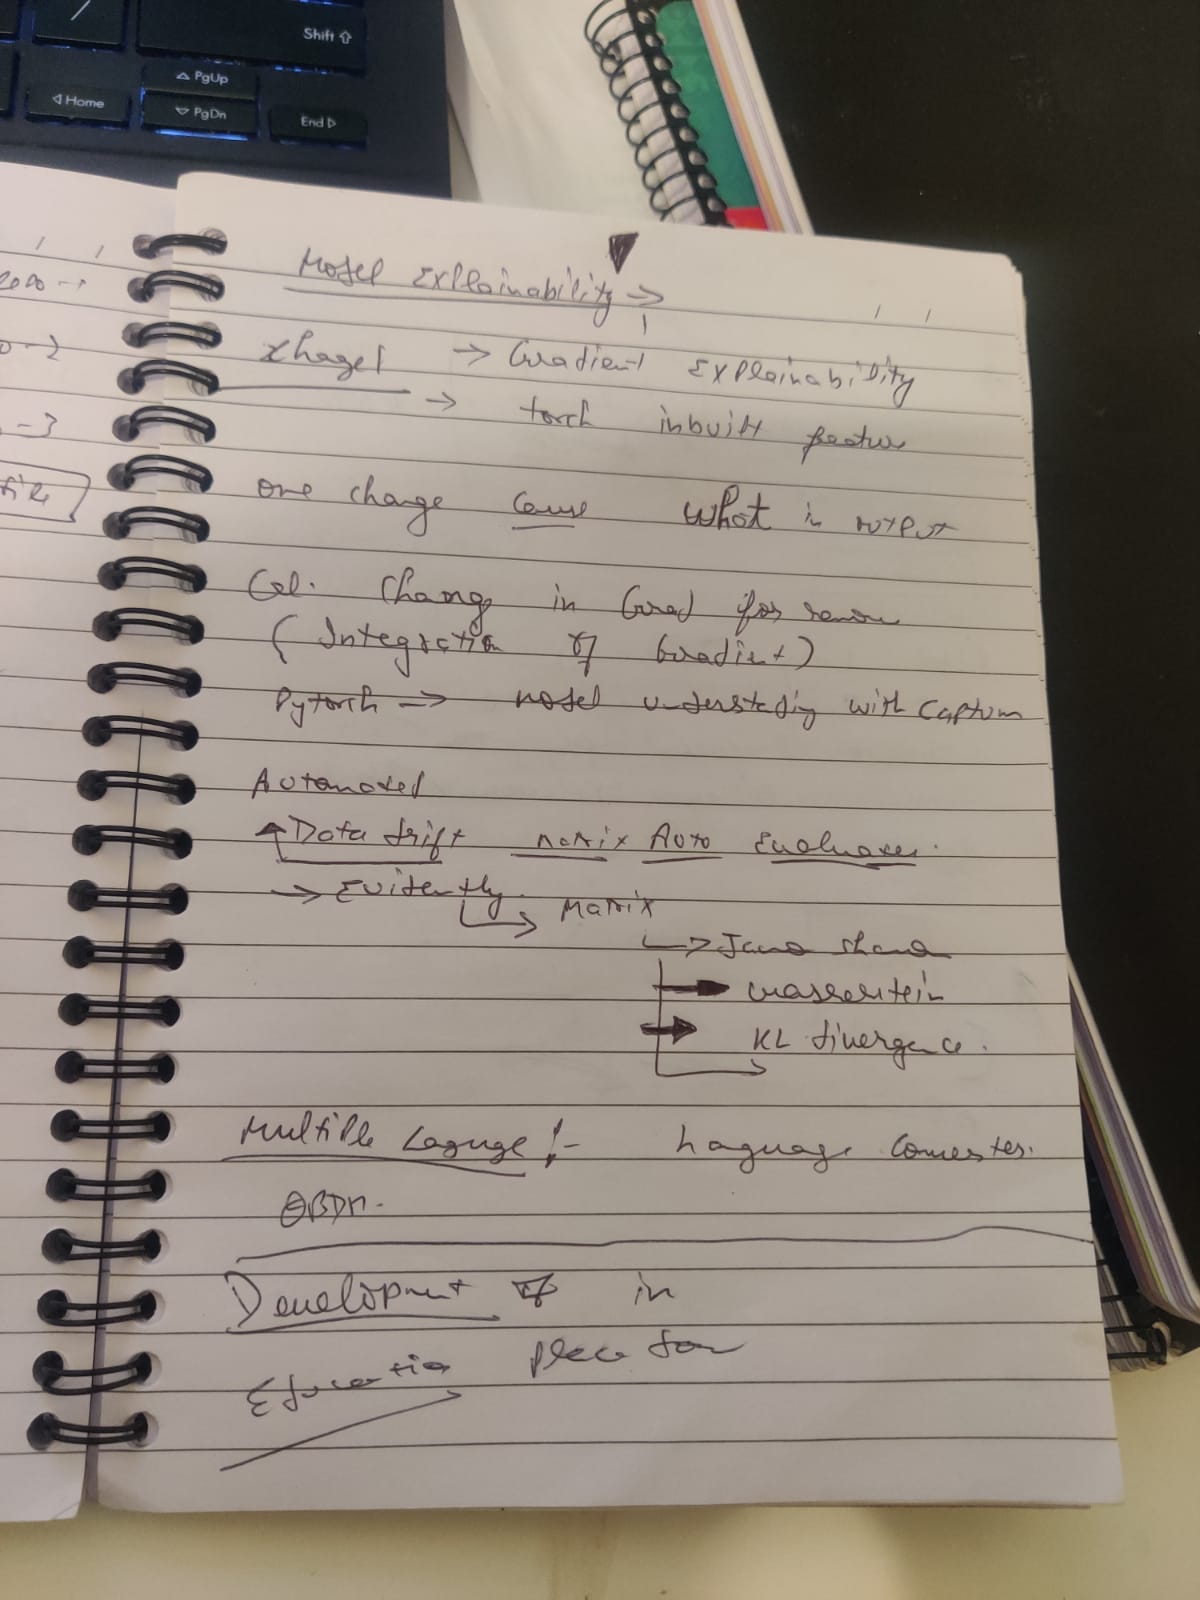 Shift ⇧
△ PgUp
◁ Home
▽ PgDn
End ▷
2000 →
-2
-3
Model Explainability →
→ Gradient Explainability
→ torch inbuilt feature
one change cause what in output
Cal. Change in Grad for
( Integration of Gradient)
Pytorch → model understading with Captum
Automated
Data drift matrix Auto
→ Evidently
→ Matrix
→ Jans Shan
→ wasserstein
→ KL divergence.
Multiple Laguge :- Language
Development of in
Education